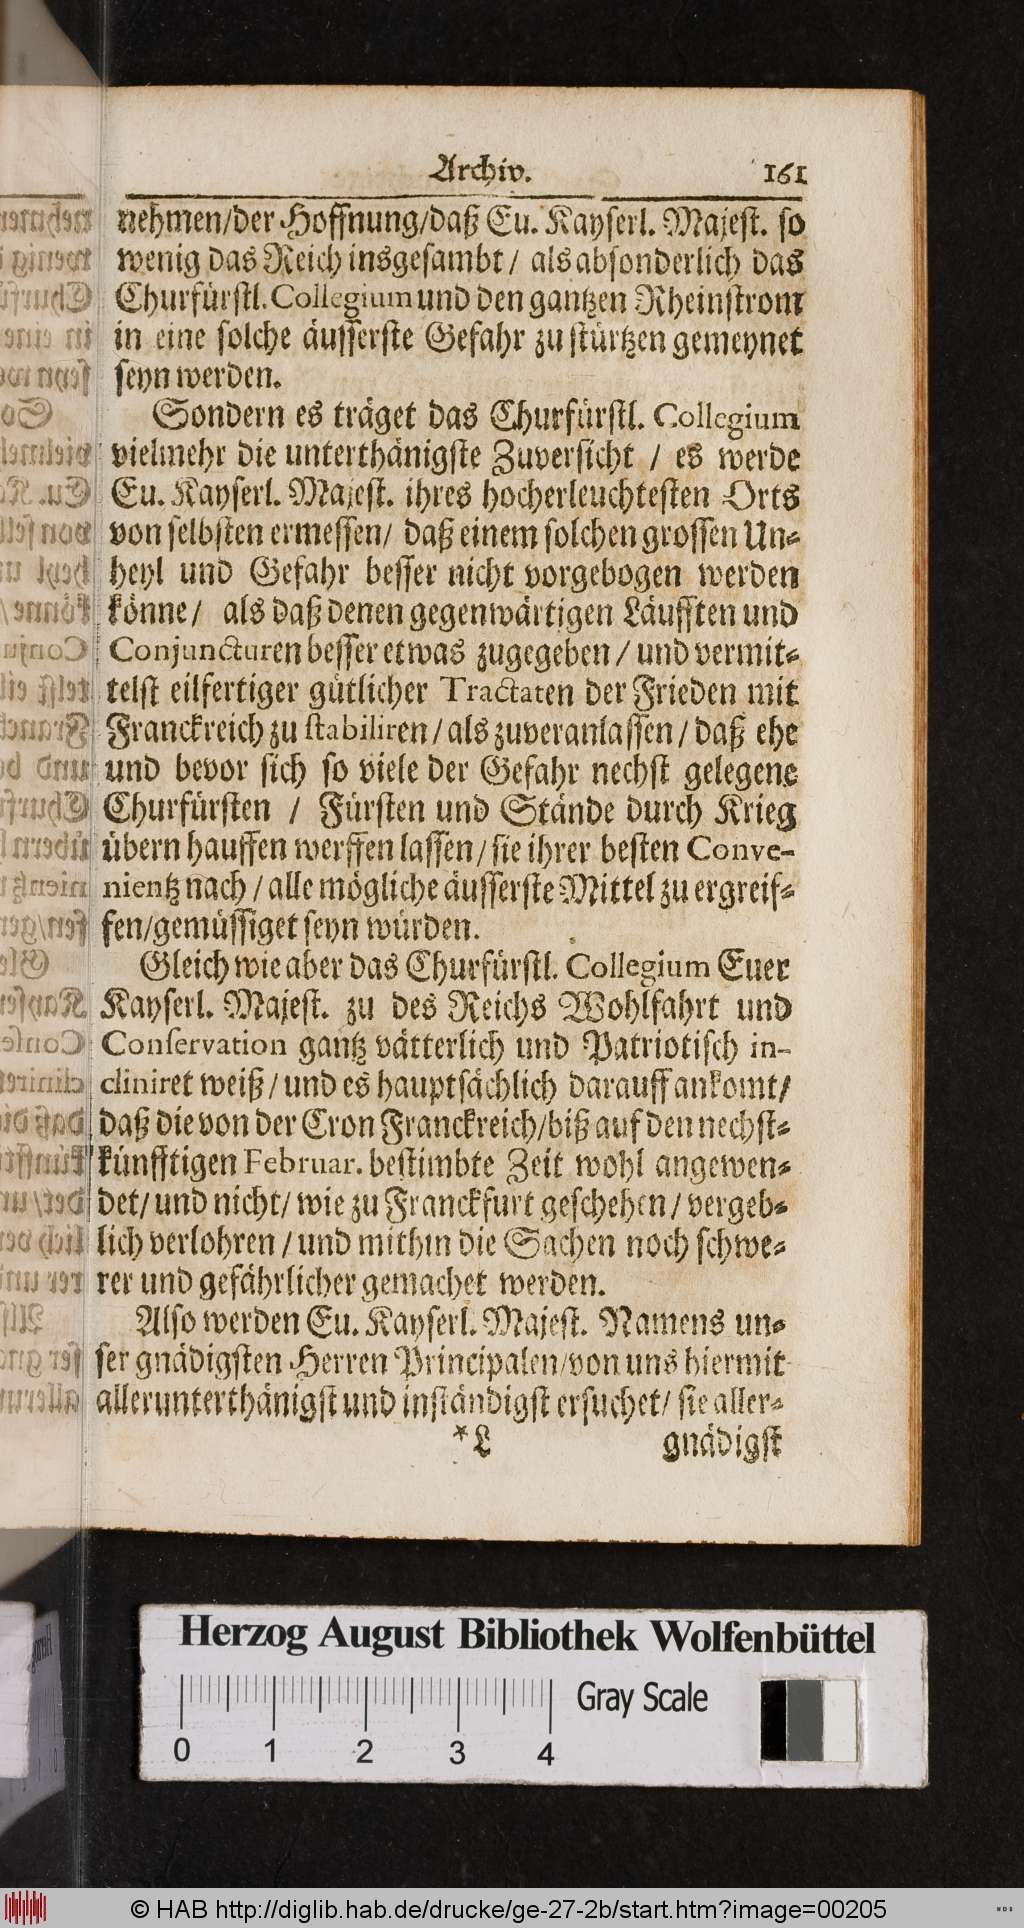 Archiv. 161
nehmen/der Hoffnung/daß Eu. Kayserl. Majest. so
wenig das Reich insgesambt / als absonderlich das
Churfürstl. Collegium und den gantzen Rheinstrom
in eine solche äusserste Gefahr zu stürtzen gemeynet
seyn werden.
Sondern es träget das Churfürstl. Collegium
vielmehr die unterthänigste Zuversicht / es werde
Eu. Kayserl. Majest. ihres hocherleuchtesten Orts
von selbsten ermessen/ daß einem solchen grossen Un-
heyl und Gefahr besser nicht vorgebogen werden
könne/ als daß denen gegenwärtigen Läufften und
Conjuncturen besser etwas zugegeben / und vermit-
telst eilfertiger gütlicher Tractaten der Frieden mit
Franckreich zu stabiliren / als zuveranlassen / daß ehe
und bevor sich so viele der Gefahr nechst gelegene
Churfürsten / Fürsten und Stände durch Krieg
übern hauffen werffen lassen / sie ihrer besten Conve-
nientz nach / alle mögliche äusserste Mittel zu ergreif-
fen/gemüssiget seyn würden.
Gleich wie aber das Churfürstl. Collegium Euer
Kayserl. Majest. zu des Reichs Wohlfahrt und
Conservation gantz vätterlich und Patriotisch in-
cliniret weiß / und es hauptsächlich darauff ankomt/
daß die von der Cron Franckreich/biß auf den nechst-
künfftigen Februar. bestimbte Zeit wohl angewen-
det/ und nicht/ wie zu Franckfurt geschehen / vergeb-
lich verlohren / und mithin die Sachen noch schwe-
rer und gefährlicher gemachet werden.
Also werden Eu. Kayserl. Majest. Namens un-
ser gnädigsten Herren Principalen/von uns hiermit
allerunterthänigst und inständigst ersuchet/ sie aller-
*L gnädigst
Herzog August Bibliothek Wolfenbüttel
0 1 2 3 4 Gray Scale
© HAB http://diglib.hab.de/drucke/ge-27-2b/start.htm?image=00205